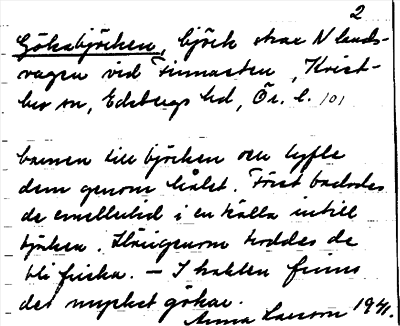 2
Gökabjörken, björk strax N lands-
vägen vid Finnasten, Krist-
ber sn, Edsbergs hd, Ör. l. 101
barnen till björken och lyfte
dem genom hålet. Först badades
de emellertid i en källa intill
björken. Härigenom troddes de
bli friska. – I trakten finns
det mycket gökar.
Anna Larsson 1941.